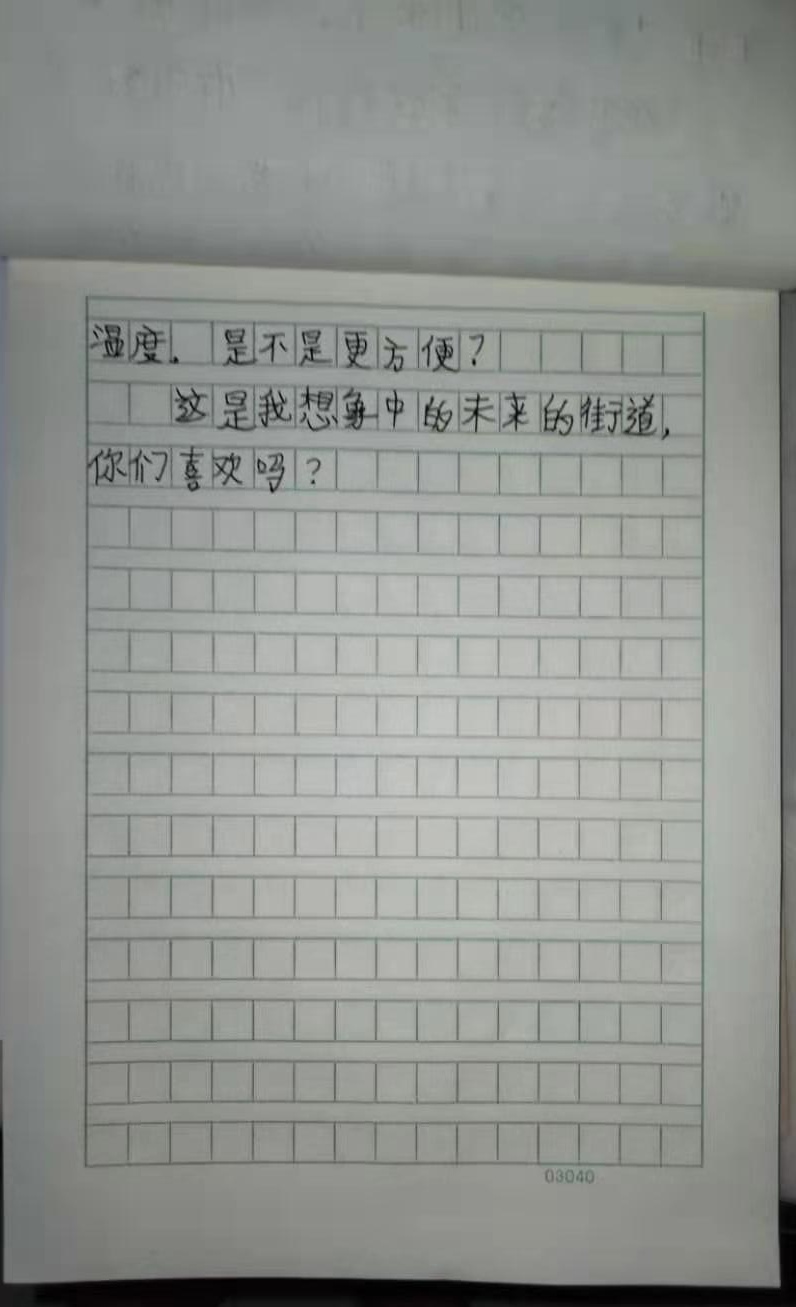 温度. 是不是更方便?
这是我想象中的未来的街道,
你们喜欢吗?
03040